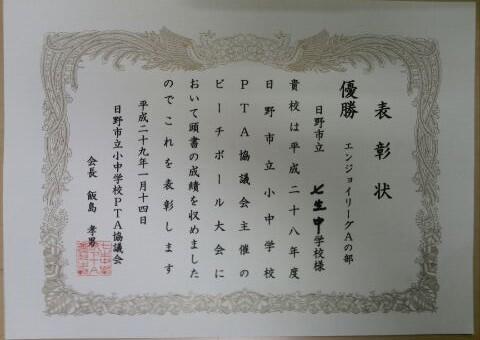 表彰状
優勝 エンジョイリーグAの部
日野市立 七生中学校様
貴校は平成二十八年度
日野市立小中学校
PTA協議会主催の
ビーチボール大会に
おいて頭書の成績を収めました
のでこれを表彰します
平成二十九年一月十四日
日野市立小中学校PTA協議会
会長 飯島 孝男